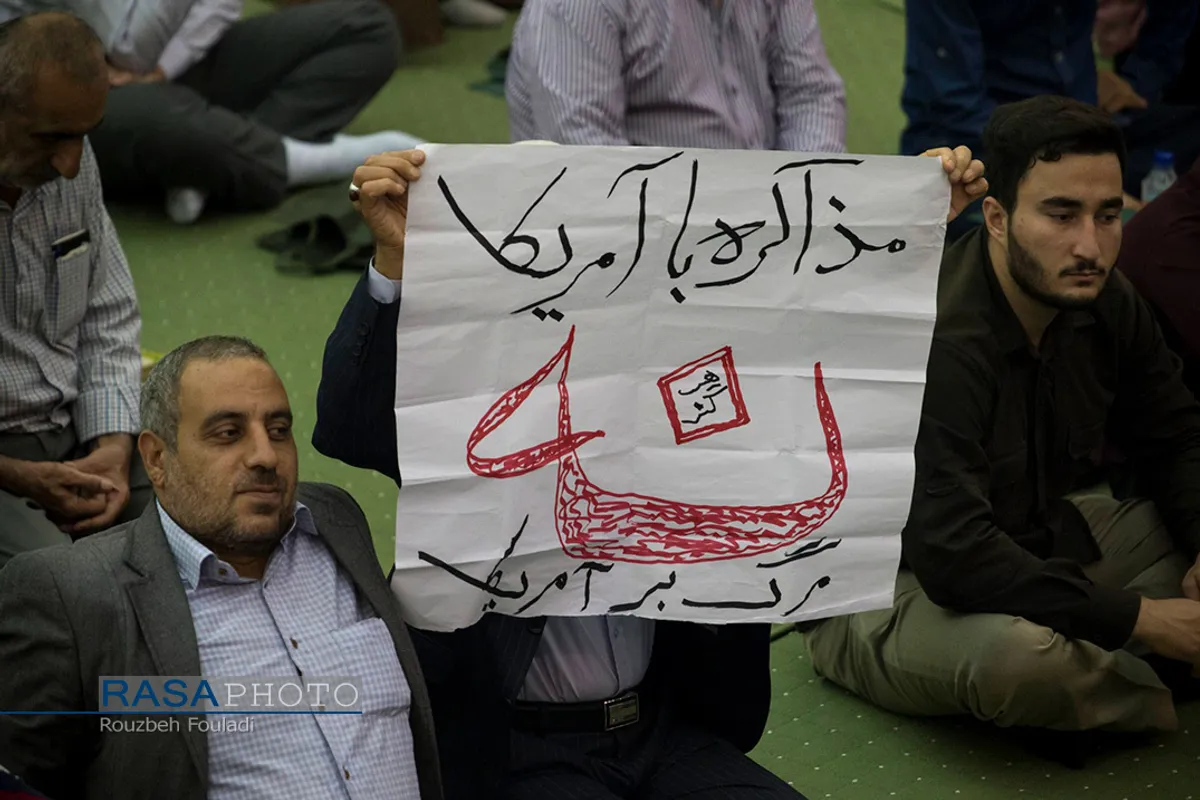 مذاکره با آمریکا
نه
هر
گز
مرگ بر آمریکا
RASAPHOTO
Rouzbeh Fouladi